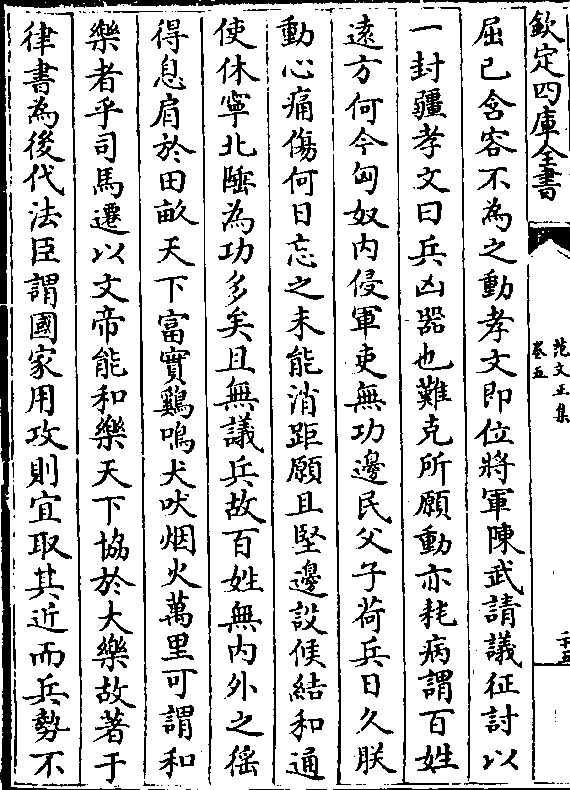 欽定四庫全書
范文正集
卷五
二十五
屈已含容不為之動孝文即位將軍陳武請議征討以
一封疆孝文曰兵凶器也難克所願動亦耗病謂百姓
遠方何今匈奴内侵軍吏無功邊民父子荷兵日久朕
動心痛傷何日忘之未能消距願且堅邊設候結和通
使休寧北陲為功多矣且無議兵故百姓無内外之徭
得息肩於田畝天下富實鷄鳴犬吠烟火萬里可謂和
樂者乎司馬遷以文帝能和樂天下協於大樂故著于
律書為後代法臣謂國家用攻則宜取其近而兵勢不